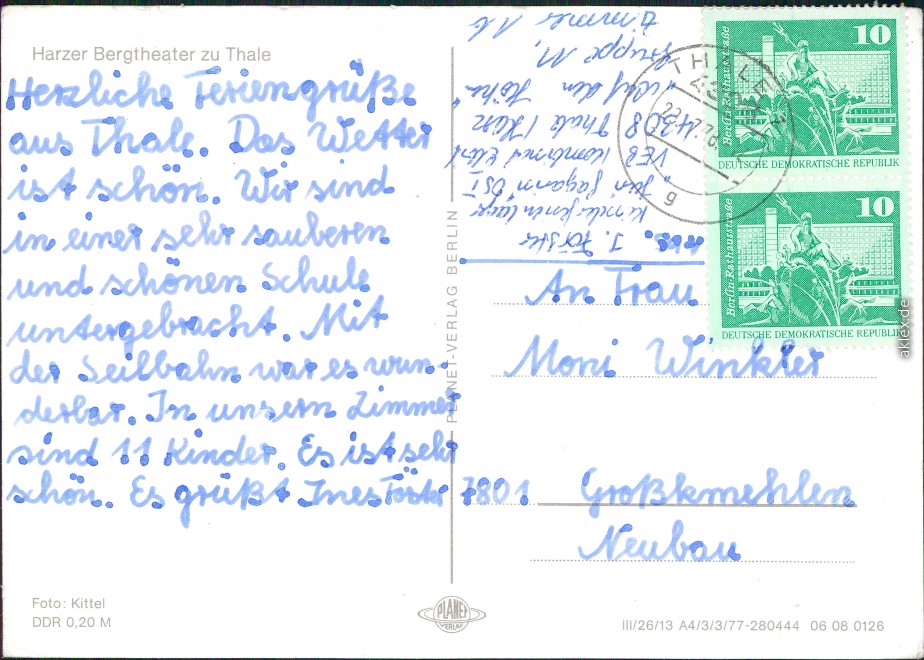 Harzer Bergtheater zu Thale
Herzliche Feriengrüße
aus Thale. Das Wetter
ist schön. Wir sind
in einer sehr sauberen
und schönen Schule
untergebracht. Mit
der Seilbahn war es wun-
derbar. In unsern Zimmer
sind 11 Kinder. Es ist sehr
schön. Es grüßt Ines Förster
Foto: Kittel
DDR 0,20 M
PLANET-VERLAG BERLIN
PLANET
VERLAG
Abs. I. Förster
Kinderferienlager
"Juri Gagarin"
VEB Kombinat
4308 Thale / Harz
"Auf den Höhe"
Gruppe 11,
Zimmer 16
THALE
4308
g
Berlin-Rathausstraße
10
DEUTSCHE DEMOKRATISCHE REPUBLIK
Berlin-Rathausstraße
10
DEUTSCHE DEMOKRATISCHE REPUBLIK
An Frau
Moni Winkler
7801 Großkmehlen
Neubau
III/26/13 A4/3/3/77-280444 06 08 0126
aklex.de